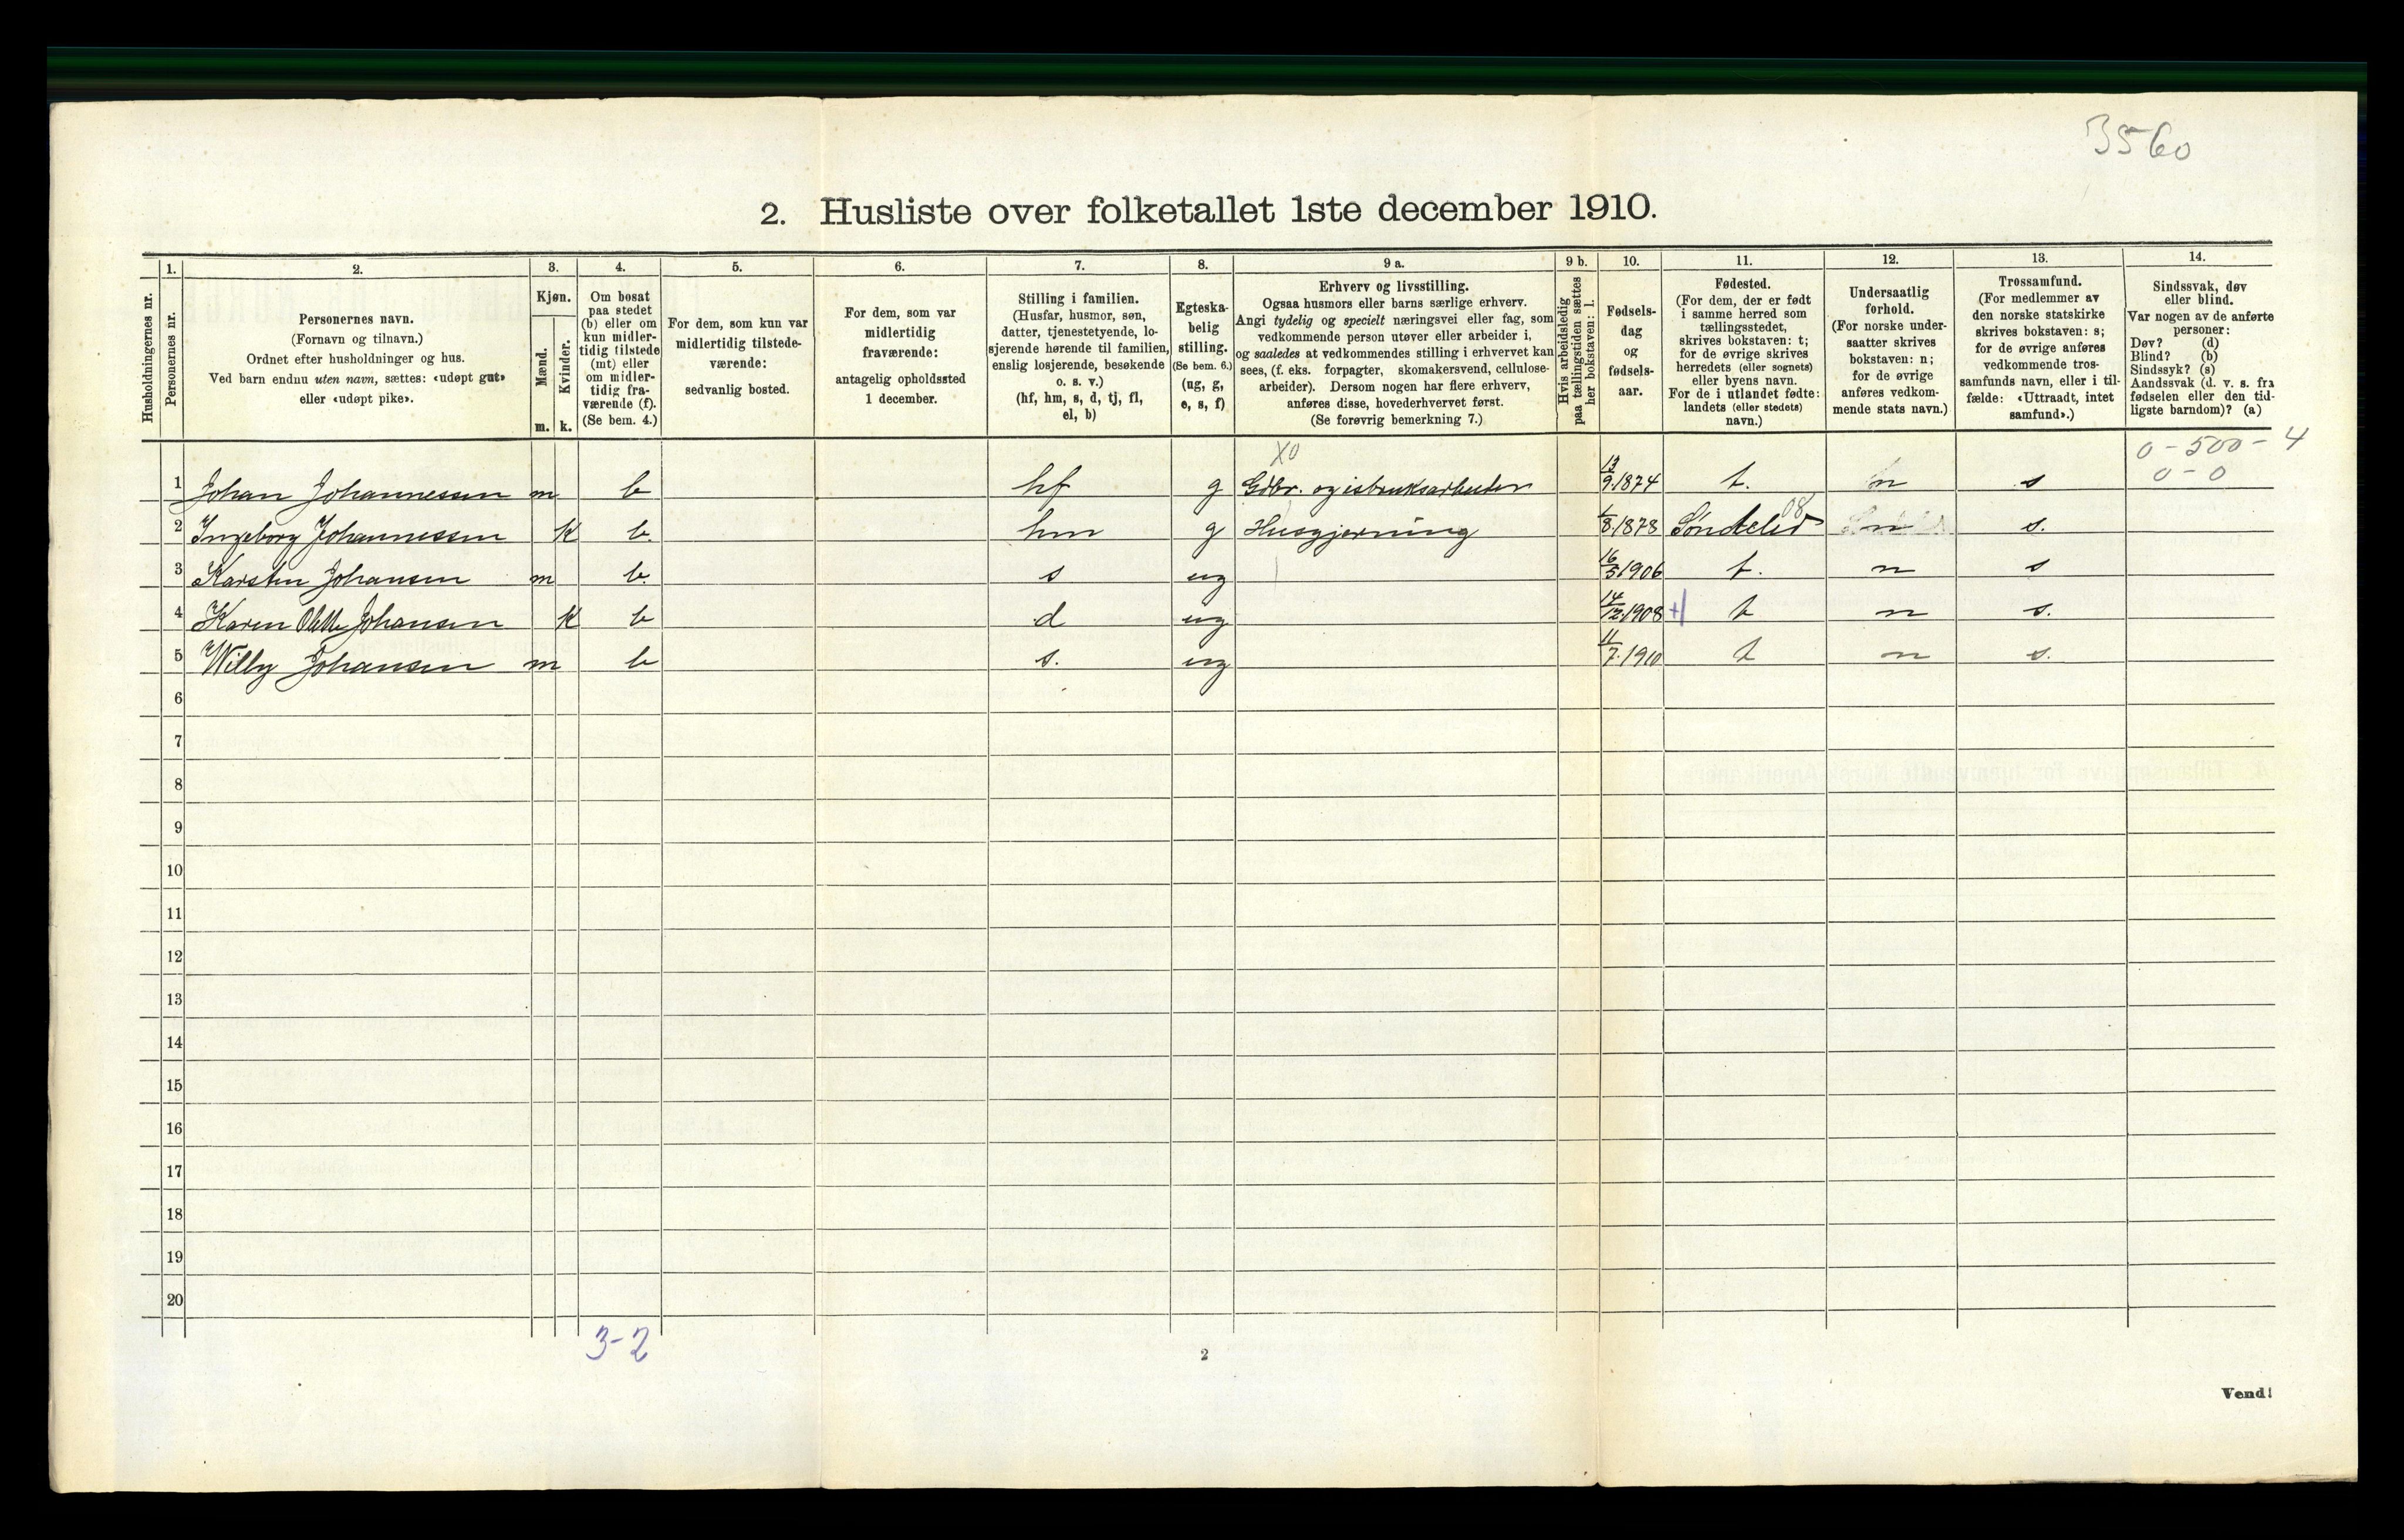 3560
2. Husliste over folketallet 1ste december 1910.
Husholdningernes nr.
1. Personernes nr.
2. Personernes navn.
(Fornavn og tilnavn.)
Ordnet efter husholdninger og hus.
Ved barn endnu uten navn, sættes: «udøpt gut»
eller «udøpt pike».
3. Kjøn.
Mænd. Kvinder.
m. k.
4. Om bosat
paa stedet
(b) eller om
kun midler-
tidig tilstede
(mt) eller
om midler-
tidig fra-
værende (f).
(Se bem. 4.)
5. For dem, som kun var
midlertidig tilstede-
værende:
sedvanlig bosted.
6. For dem, som var
midlertidig
fraværende:
antagelig opholdssted
1 december.
7. Stilling i familien.
(Husfar, husmor, søn,
datter, tjenestetyende, lo-
sjerende hørende til familien,
enslig losjerende, besøkende
o. s. v.)
(hf, hm, s, d, tj, fl,
el, b)
8. Egteska-
belig
stilling.
(Se bem. 6.)
(ug, g,
e, s, f)
9 a. Erhverv og livsstilling.
Ogsaa husmors eller barns særlige erhverv.
Angi tydelig og specielt næringsvei eller fag, som
vedkommende person utøver eller arbeider i,
og saaledes at vedkommendes stilling i erhvervet kan
sees, (f. eks. forpagter, skomakersvend, cellulose-
arbeider). Dersom nogen har flere erhverv,
anføres disse, hovederhvervet først.
(Se forøvrig bemerkning 7.)
9 b. Hvis arbeidsledig
paa tællingstiden sættes
her bokstaven: l.
10. Fødsels-
dag
og
fødsels-
aar.
11. Fødested.
(For dem, der er født
i samme herred som
tællingsstedet,
skrives bokstaven: t;
for de øvrige skrives
herredets (eller sognets)
eller byens navn.
For de i utlandet fødte:
landets (eller stedets)
navn.)
12. Undersaatlig
forhold.
(For norske under-
saatter skrives
bokstaven: n;
for de øvrige
anføres vedkom-
mende stats navn.)
13. Trossamfund.
(For medlemmer av
den norske statskirke
skrives bokstaven: s;
for de øvrige anføres
vedkommende tros-
samfunds navn, eller i til-
fælde: «Uttraadt, intet
samfund».)
14. Sindssvak, døv
eller blind.
Var nogen av de anførte
personer:
Døv? (d)
Blind? (b)
Sindssyk? (s)
Aandssvak (d. v. s. fra
fødselen eller den tid-
ligste barndom)? (a)
X0 0-500-4
0-0
1 Johan Johannessen m b hf g Gdbr. og isbruksarbeider 13/9.1874 t. n s
08
2 Ingeborg Johannessen k b. hm g Husgjerning 1/8.1878 Søndeled n s.
3 Karsten Johansen m b. s ug 16/5 1906 t. n s
4 Karen Olette Johansen k b d ug 14/12 1908 + t n s.
5 Willy Johansen m b s. ug 11/7.1910 t n s.
6
7
8
9
10
11
12
13
14
15
16
17
18
19
20
3-2
2
Vend!